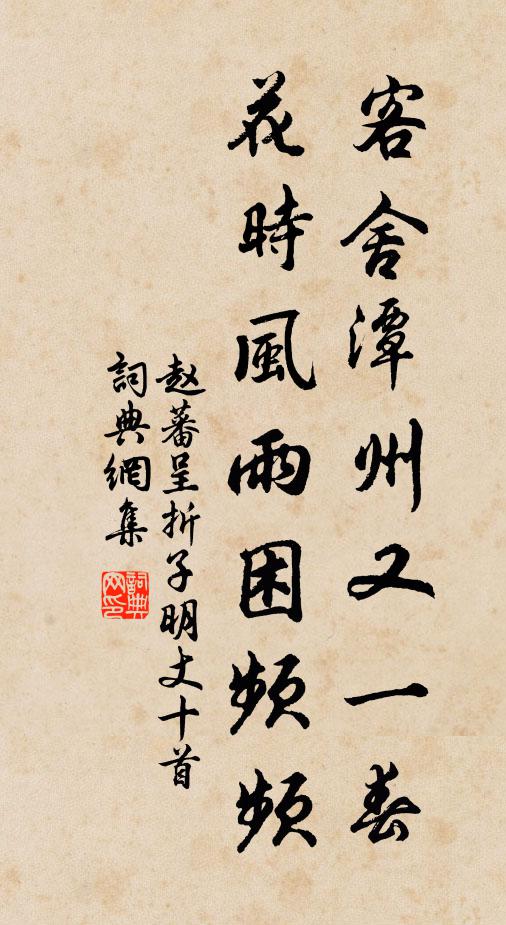 客舍潭州又一春
花時風雨困頻頻
赵蕃呈折子明丈十首
詞典網集
詞典网印